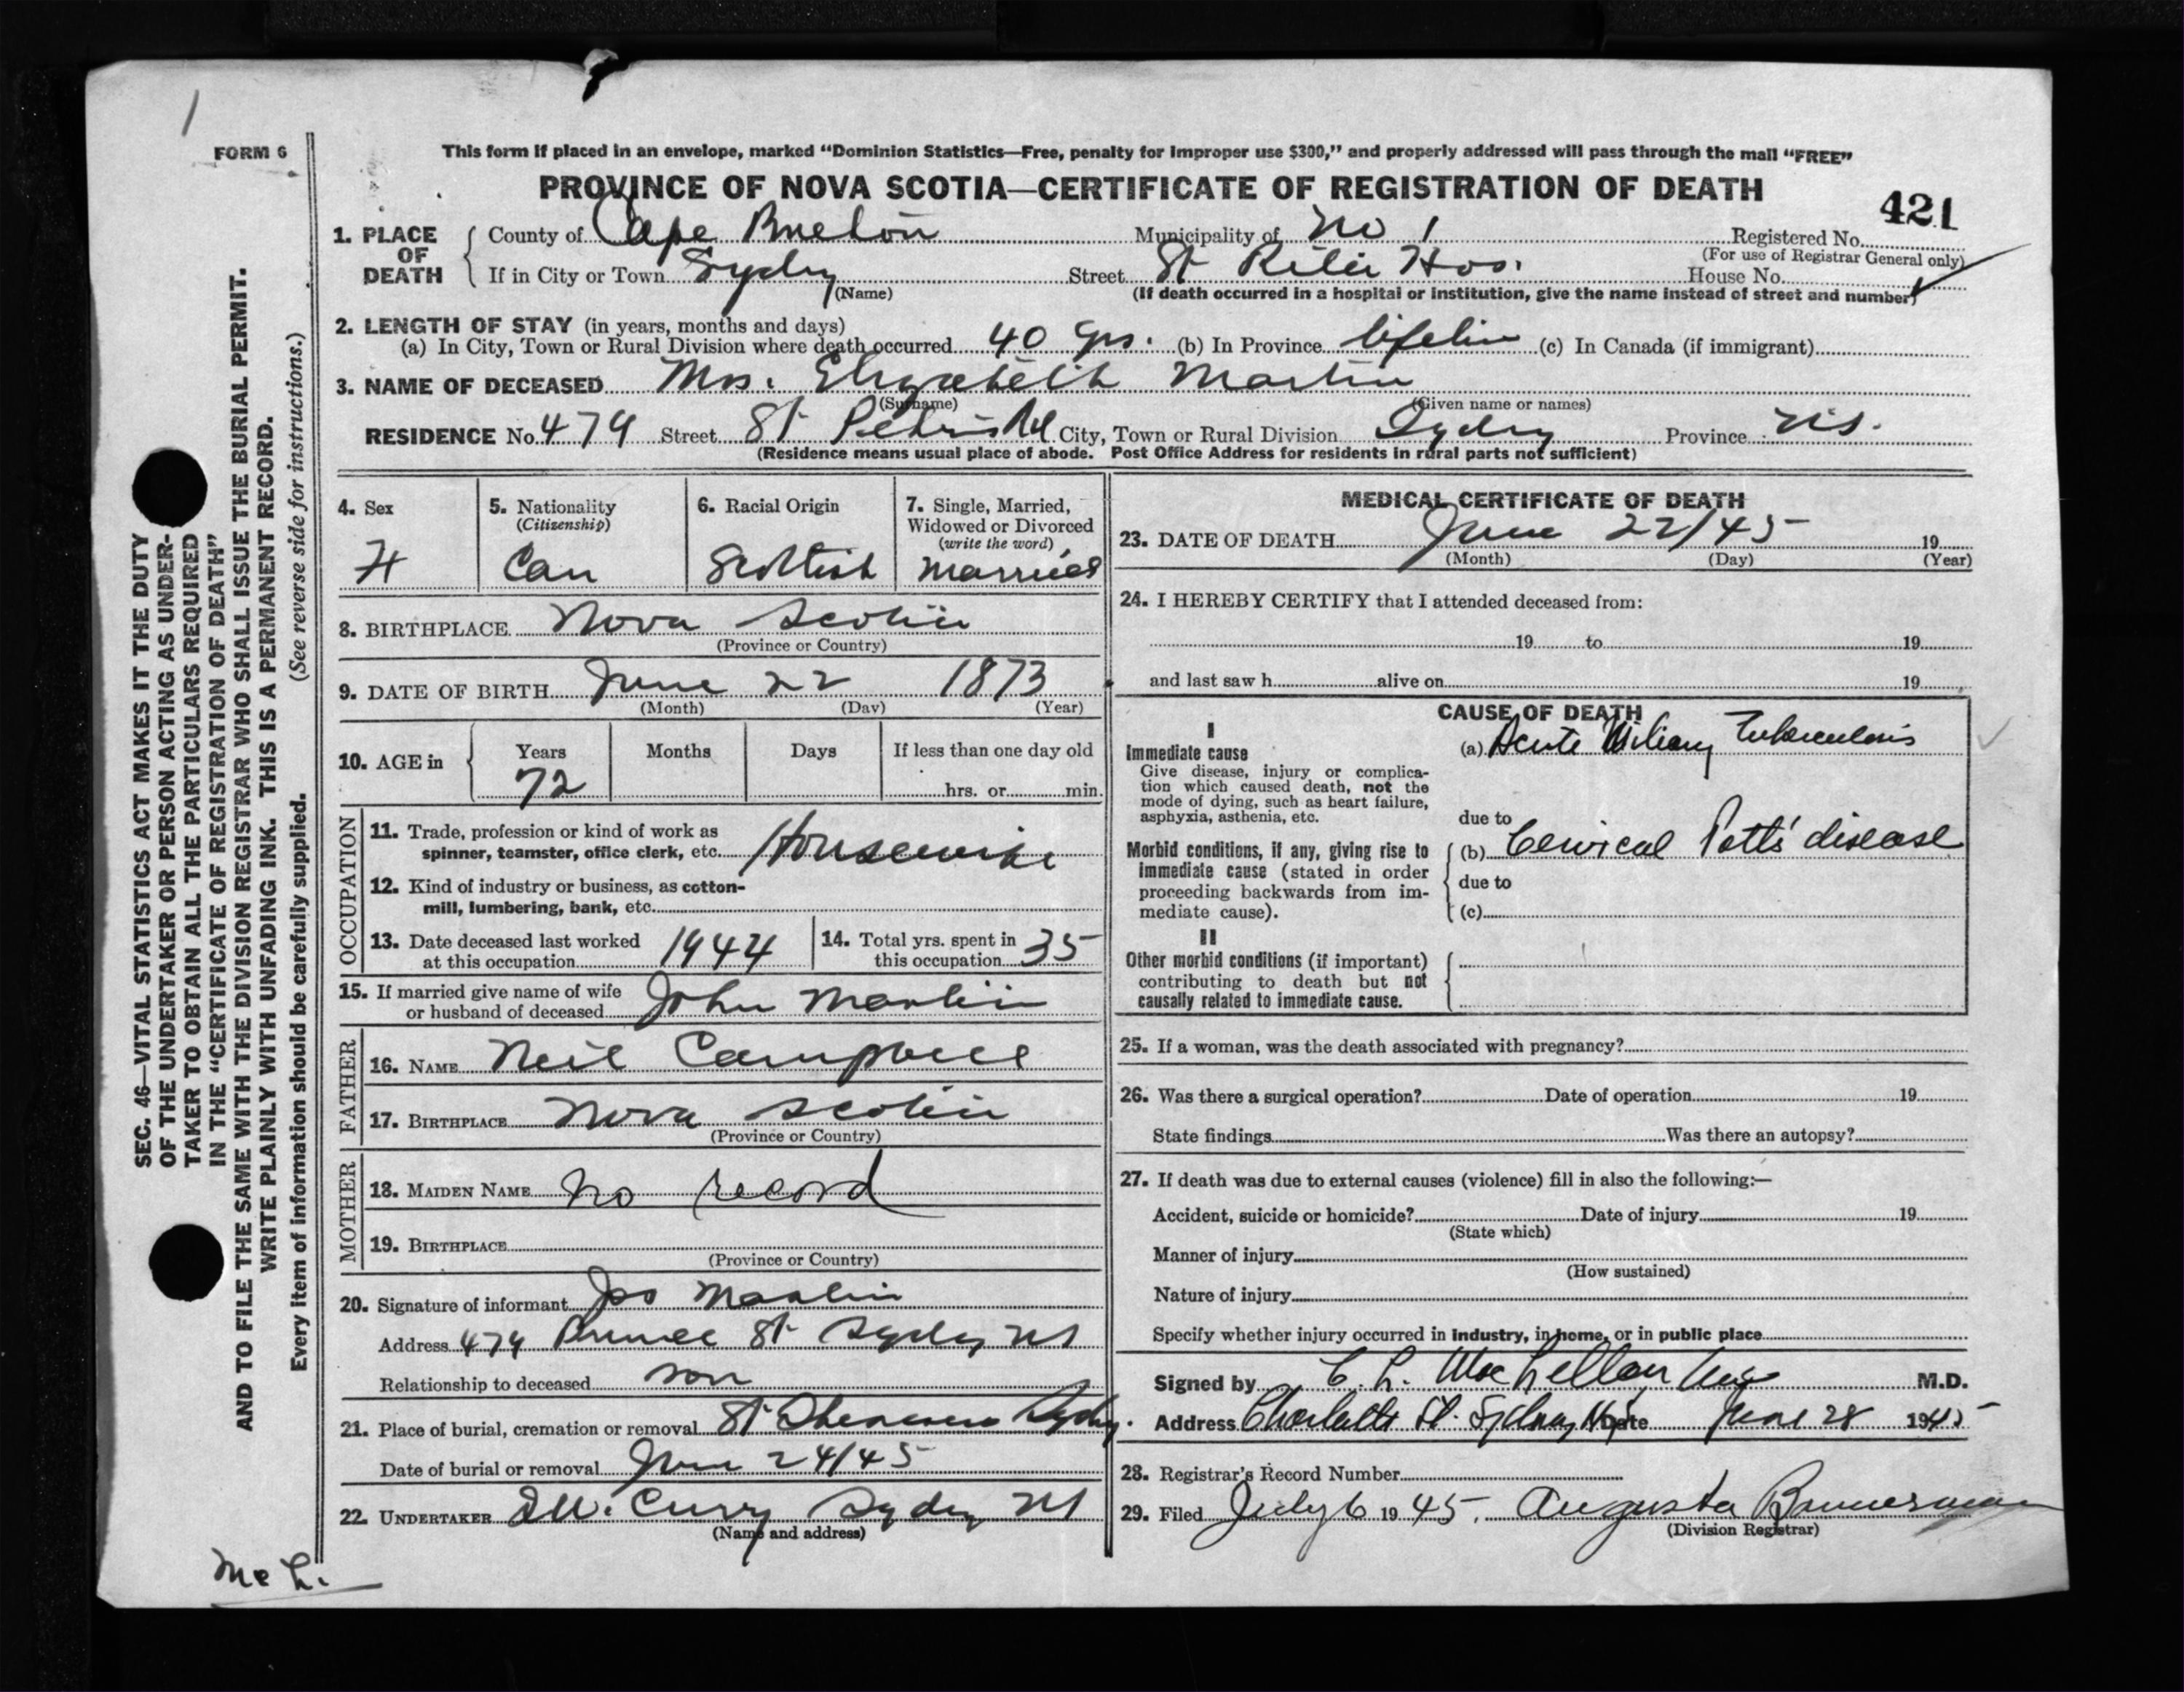 1
FORM 6
This form if placed in an envelope, marked “Dominion Statistics—Free, penalty for improper use $300,” and properly addressed will pass through the mail “FREE”
PROVINCE OF NOVA SCOTIA—CERTIFICATE OF REGISTRATION OF DEATH
421
1. PLACE OF DEATH
County of Cape Breton Municipality of No 1 Registered No.
(For use of Registrar General only)
If in City or Town Sydney Street St Rita Hos. House No.
(Name) (If death occurred in a hospital or institution, give the name instead of street and number)
2. LENGTH OF STAY (in years, months and days)
(a) In City, Town or Rural Division where death occurred 40 yrs. (b) In Province lifetime (c) In Canada (if immigrant)
3. NAME OF DECEASED Mrs. Elizabeth Martin
(Surname) (Given name or names)
RESIDENCE No. 479 Street St Peters Rd City, Town or Rural Division Sydney Province N.S.
(Residence means usual place of abode. Post Office Address for residents in rural parts not sufficient)
4. Sex
F
5. Nationality
(Citizenship)
Can
6. Racial Origin
Scottish
7. Single, Married,
Widowed or Divorced
(write the word)
Married
8. BIRTHPLACE Nova Scotia
(Province or Country)
9. DATE OF BIRTH June 22 1873
(Month) (Day) (Year)
10. AGE in
Years Months Days If less than one day old
72 hrs. or min.
OCCUPATION
11. Trade, profession or kind of work as
spinner, teamster, office clerk, etc. Housewife
12. Kind of industry or business, as cotton-
mill, lumbering, bank, etc.
13. Date deceased last worked
at this occupation 1944
14. Total yrs. spent in
this occupation 35
15. If married give name of wife
or husband of deceased John Martin
FATHER
16. NAME Neil Campbell
17. BIRTHPLACE Nova Scotia
(Province or Country)
MOTHER
18. MAIDEN NAME no record
19. BIRTHPLACE
(Province or Country)
20. Signature of informant Jos Martin
Address 479 Prince St Sydney NS
Relationship to deceased son
21. Place of burial, cremation or removal St Sydney
Date of burial or removal June 24/45
22. UNDERTAKER Curry Sydney NS
(Name and address)
MEDICAL CERTIFICATE OF DEATH
23. DATE OF DEATH June 22/45 19
(Month) (Day) (Year)
24. I HEREBY CERTIFY that I attended deceased from:
19 to 19
and last saw h alive on 19
CAUSE OF DEATH
I
Immediate cause
Give disease, injury or complica-
tion which caused death, not the
mode of dying, such as heart failure,
asphyxia, asthenia, etc.
(a) Acute Miliary Tuberculosis
due to
Morbid conditions, if any, giving rise to
immediate cause (stated in order
proceeding backwards from im-
mediate cause).
(b) Cervical Potts' disease
due to
(c)
II
Other morbid conditions (if important)
contributing to death but not
causally related to immediate cause.
25. If a woman, was the death associated with pregnancy?
26. Was there a surgical operation? Date of operation 19
State findings Was there an autopsy?
27. If death was due to external causes (violence) fill in also the following:—
Accident, suicide or homicide? Date of injury 19
(State which)
Manner of injury
(How sustained)
Nature of injury
Specify whether injury occurred in industry, in home, or in public place
Signed by C. L. MacLellan M.D.
Address Charlotte St. Sydney NS Date June 28 1945
28. Registrar's Record Number
29. Filed July 6 1945. Augusta Bannerman
(Division Registrar)
SEC. 46—VITAL STATISTICS ACT MAKES IT THE DUTY
OF THE UNDERTAKER OR PERSON ACTING AS UNDER-
TAKER TO OBTAIN ALL THE PARTICULARS REQUIRED
IN THE “CERTIFICATE OF REGISTRATION OF DEATH”
AND TO FILE THE SAME WITH THE DIVISION REGISTRAR WHO SHALL ISSUE THE BURIAL PERMIT.
WRITE PLAINLY WITH UNFADING INK. THIS IS A PERMANENT RECORD.
Every item of information should be carefully supplied. (See reverse side for instructions.)
Mc L.